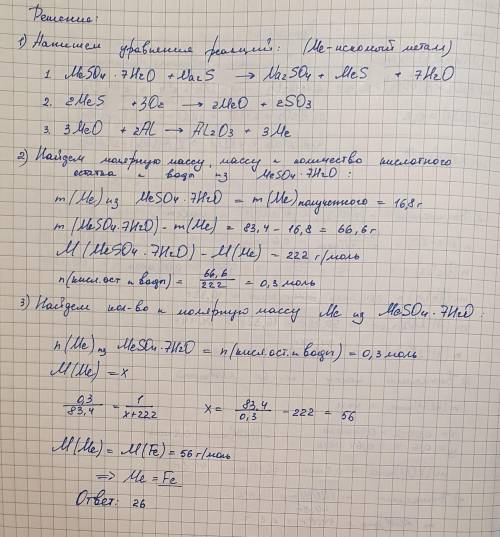 Решение:
1) Напишем уравнения реакций: (Me-искомый металл)
1. MeSO4·7H2O + Na2S → Na2SO4 + MeS + 7H2O
2. 2MeS + 3O2 → 2MeO + 2SO3
3. 3MeO + 2Al → Al2O3 + 3Me
2) Найдем молярную массу, массу и количество кислотного
остатка и воды из MeSO4·7H2O:
m(Me) из MeSO4·7H2O = m(Me) полученного = 16,8 г
m(MeSO4·7H2O) - m(Me) = 83,4 - 16,8 = 66,6 г
M(MeSO4·7H2O) - M(Me) - 222 г/моль
n(кисл.ост и воды) = 66,6/222 = 0,3 моль
3) Найдем кол-во и молярную массу Me из MeSO4·7H2O:
n(Me) из MeSO4·7H2O = n(кисл.ост. и воды) = 0,3 моль
M(Me) = x
0,3/83,4 = 1/x+222 x = 83,4/0,3 - 222 = 56
M(Me) = M(Fe) = 56 г/моль
=> Me = Fe
Ответ: 26